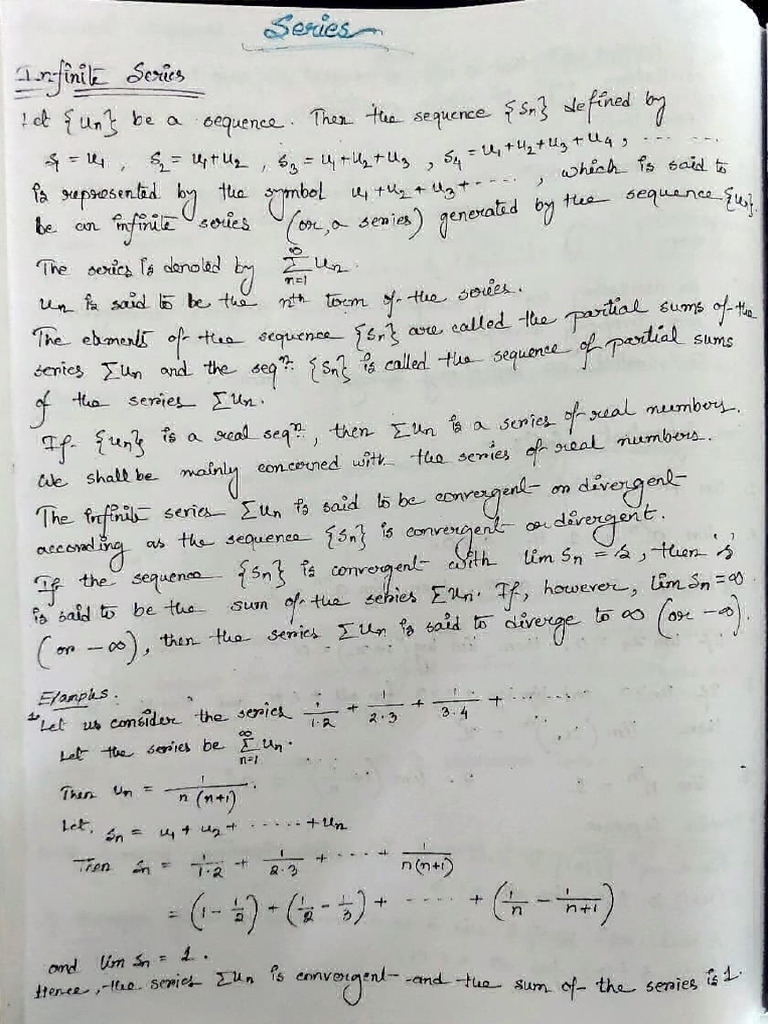 Series
Infinite Series
Let {un} be a sequence. Then the sequence {Sn} defined by
S1 = u1, S2 = u1+u2, S3 = u1+u2+u3, S4 = u1+u2+u3+u4, ........
is represented by the symbol u1+u2+u3+....., which is said to
be an infinite series (or, a series) generated by the sequence {un}.
The series is denoted by ∞∑n=1 un.
un is said to be the nth term of the series.
The elements of the sequence {Sn} are called the partial sums of the
series ∑un and the seqn. {Sn} is called the sequence of partial sums
of the series ∑un.
If {un} is a real seqn., then ∑un is a series of real numbers.
We shall be mainly concerned with the series of real numbers.
The infinite series ∑un is said to be convergent or divergent
according as the sequence {Sn} is convergent or divergent.
If the sequence {Sn} is convergent with lim Sn = s, then 's'
is said to be the sum of the series ∑un. If, however, lim Sn = ∞
(or -∞), then the series ∑un is said to diverge to ∞ (or -∞).
Examples.
1. Let us consider the series 1/1·2 + 1/2·3 + 1/3·4 + ........
Let the series be ∞∑n=1 un.
Then un = 1/n(n+1).
Let, Sn = u1 + u2 + ...... + un
Then Sn = 1/1·2 + 1/2·3 + .... + 1/n(n+1)
= (1 - 1/2) + (1/2 - 1/3) + ..... + (1/n - 1/n+1)
and lim Sn = 1.
Hence, the series ∑un is convergent and the sum of the series is 1.